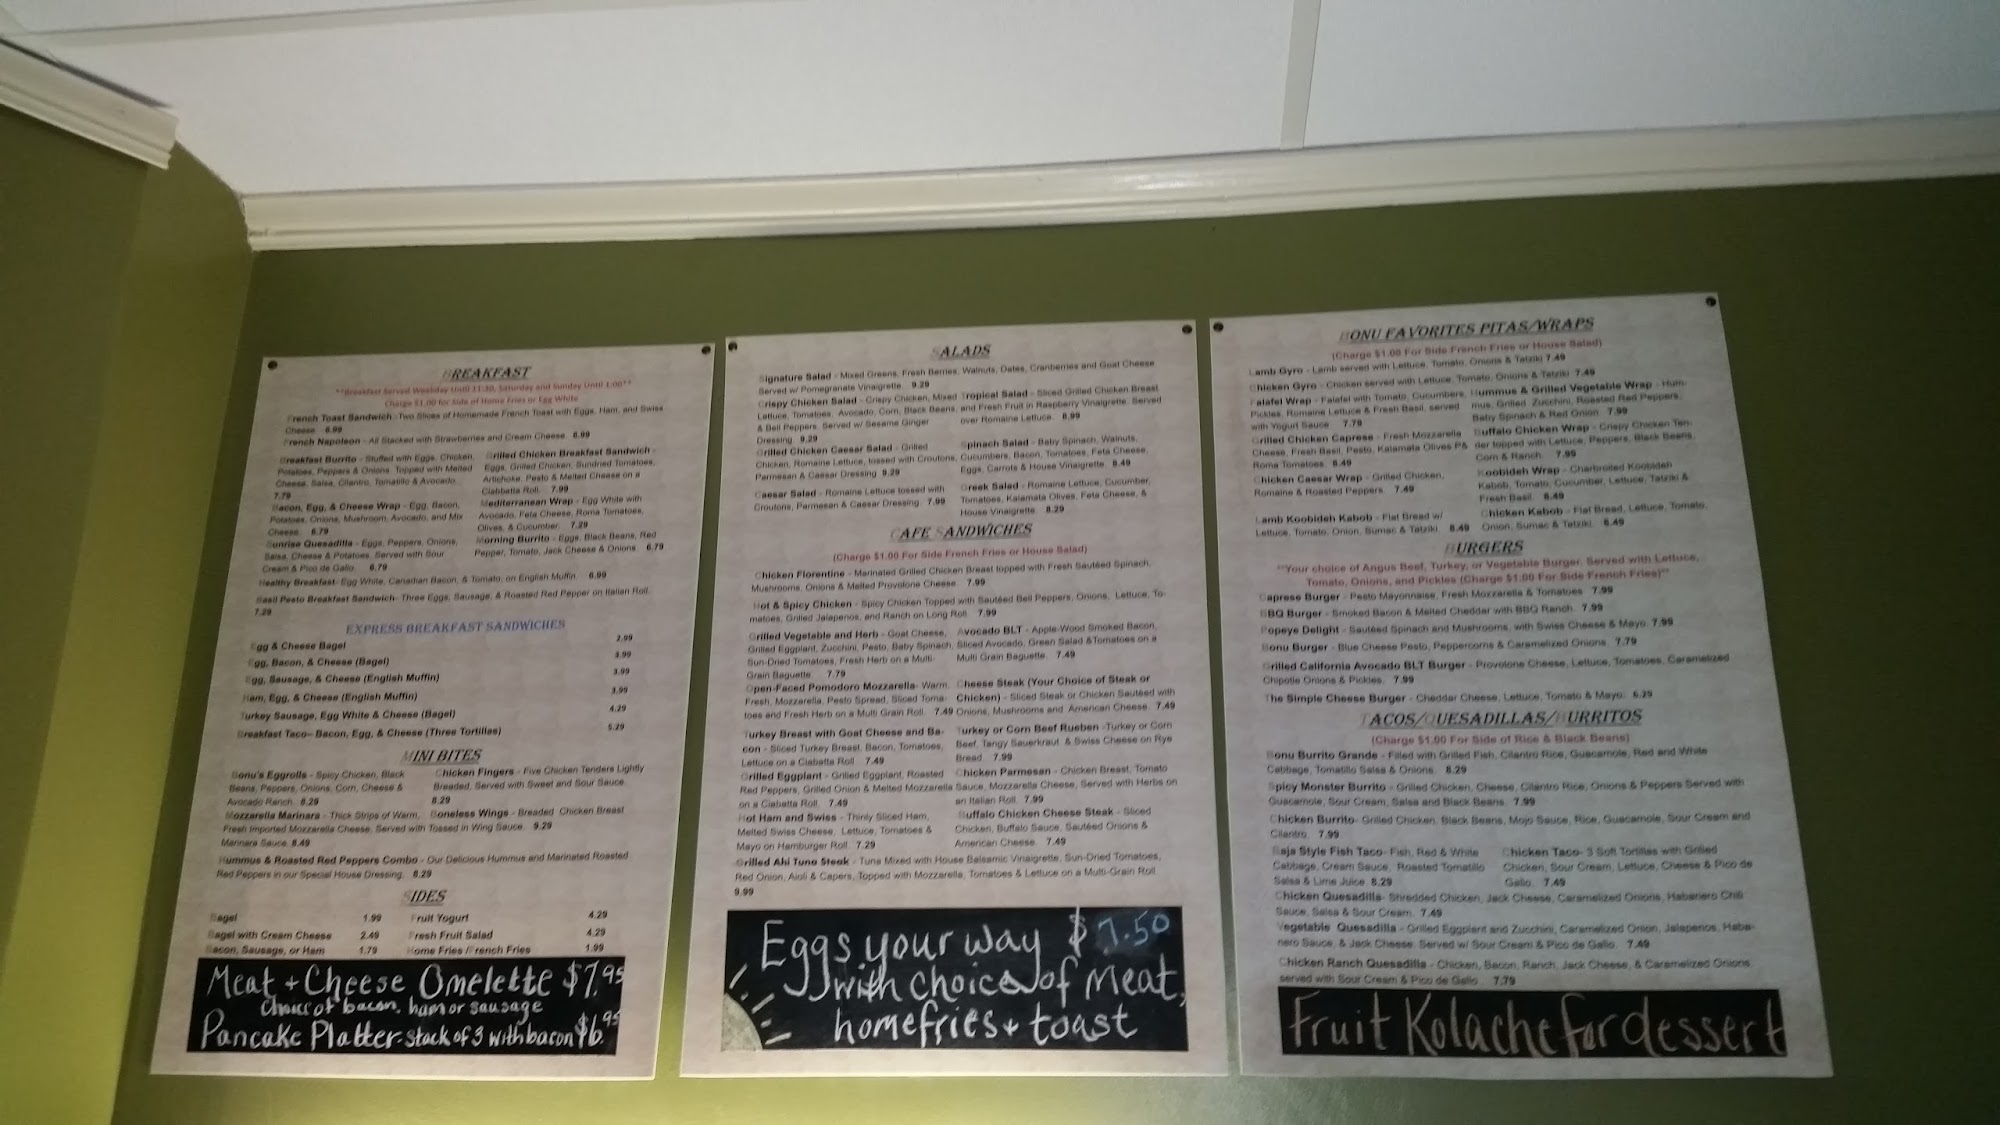 BREAKFAST
**Breakfast Served Weekday Until 11:30, Saturday and Sunday Until 1:00**
Charge $1.00 for Side of Home Fries or Egg White
French Toast Sandwich - Two Slices of Homemade French Toast with Eggs, Ham, and Swiss
Cheese 6.99
French Napoleon - All Stacked with Strawberries and Cream Cheese 6.99
Breakfast Burrito - Stuffed with Eggs, Chicken,
Potatoes, Peppers & Onions. Topped with Melted
Cheese, Salsa, Cilantro, Tomatillo & Avocado.
7.79
Bacon, Egg, & Cheese Wrap - Egg, Bacon,
Potatoes, Onions, Mushroom, Avocado, and Mix
Cheese. 6.79
Sunrise Quesadilla - Eggs, Peppers, Onions,
Salsa, Cheese & Potatoes. Served with Sour
Cream & Pico de Gallo. 6.79
Grilled Chicken Breakfast Sandwich -
Eggs, Grilled Chicken, Sundried Tomatoes,
Artichoke, Pesto & Melted Cheese on a
Ciabbatta Roll. 7.99
Mediterranean Wrap - Egg White with
Avocado, Feta Cheese, Roma Tomatoes,
Olives, & Cucumber. 7.29
Morning Burrito - Eggs, Black Beans, Red
Pepper, Tomato, Jack Cheese & Onions 6.79
Healthy Breakfast- Egg White, Canadian Bacon, & Tomato, on English Muffin. 6.99
Basil Pesto Breakfast Sandwich- Three Eggs, Sausage, & Roasted Red Pepper on Italian Roll.
7.29
EXPRESS BREAKFAST SANDWICHES
Egg & Cheese Bagel 2.99
Egg, Bacon, & Cheese (Bagel) 3.99
Egg, Sausage, & Cheese (English Muffin) 3.99
Ham, Egg, & Cheese (English Muffin) 3.99
Turkey Sausage, Egg White & Cheese (Bagel) 4.29
Breakfast Taco- Bacon, Egg, & Cheese (Three Tortillas) 5.29
MINI BITES
Bonu's Eggrolls - Spicy Chicken, Black
Beans, Peppers, Onions, Corn, Cheese &
Avocado Ranch. 8.29
Mozzarella Marinara - Thick Strips of Warm,
Fresh Imported Mozzarella Cheese, Served with
Marinara Sauce 8.49
Chicken Fingers - Five Chicken Tenders Lightly
Breaded, Served with Sweet and Sour Sauce.
8.29
Boneless Wings - Breaded Chicken Breast
Tossed in Wing Sauce. 9.29
Hummus & Roasted Red Peppers Combo - Our Delicious Hummus and Marinated Roasted
Red Peppers in our Special House Dressing. 8.29
SIDES
Bagel 1.99 Fruit Yogurt 4.29
Bagel with Cream Cheese 2.49 Fresh Fruit Salad 4.29
Bacon, Sausage, or Ham 1.79 Home Fries /French Fries 1.99
Meat + Cheese Omelette $7.95
Choice of bacon, ham or sausage
Pancake Platter- stack of 3 with bacon $6.95
SALADS
Signature Salad - Mixed Greens, Fresh Berries, Walnuts, Dates, Cranberries and Goat Cheese
Served w/ Pomegranate Vinaigrette. 9.29
Crispy Chicken Salad - Crispy Chicken, Mixed
Lettuce, Tomatoes, Avocado, Corn, Black Beans,
& Bell Peppers. Served w/ Sesame Ginger
Dressing 9.29
Grilled Chicken Caesar Salad - Grilled
Chicken, Romaine Lettuce, tossed with Croutons,
Parmesan & Caesar Dressing 9.29
Caesar Salad - Romaine Lettuce tossed with
Croutons, Parmesan & Caesar Dressing. 7.99
Tropical Salad - Sliced Grilled Chicken Breast
and Fresh Fruit in Raspberry Vinaigrette. Served
over Romaine Lettuce. 8.99
Spinach Salad - Baby Spinach, Walnuts,
Cucumbers, Bacon, Tomatoes, Feta Cheese,
Eggs, Carrots & House Vinaigrette. 8.49
Greek Salad - Romaine Lettuce, Cucumber,
Tomatoes, Kalamata Olives, Feta Cheese, &
House Vinaigrette. 8.29
CAFE SANDWICHES
(Charge $1.00 For Side French Fries or House Salad)
Chicken Florentine - Marinated Grilled Chicken Breast topped with Fresh Sautéed Spinach,
Mushrooms, Onions & Melted Provolone Cheese. 7.99
Hot & Spicy Chicken - Spicy Chicken Topped with Sautéed Bell Peppers, Onions, Lettuce, To-
matoes, Grilled Jalapenos, and Ranch on Long Roll. 7.99
Grilled Vegetable and Herb - Goat Cheese,
Grilled Eggplant, Zucchini, Pesto, Baby Spinach,
Sun-Dried Tomatoes, Fresh Herb on a Multi-
Grain Baguette. 7.79
Open-Faced Pomodoro Mozzarella- Warm,
Fresh, Mozzarella, Pesto Spread, Sliced Toma-
toes and Fresh Herb on a Multi Grain Roll. 7.49
Turkey Breast with Goat Cheese and Ba-
con - Sliced Turkey Breast, Bacon, Tomatoes,
Lettuce on a Ciabatta Roll 7.49
Grilled Eggplant - Grilled Eggplant, Roasted
Red Peppers, Grilled Onion & Melted Mozzarella
on a Ciabatta Roll. 7.49
Hot Ham and Swiss - Thinly Sliced Ham,
Melted Swiss Cheese, Lettuce, Tomatoes &
Mayo on Hamburger Roll. 7.29
Avocado BLT - Apple-Wood Smoked Bacon,
Sliced Avocado, Green Salad &Tomatoes on a
Multi Grain Baguette. 7.49
Cheese Steak (Your Choice of Steak or
Chicken) - Sliced Steak or Chicken Sautéed with
Onions, Mushrooms and American Cheese. 7.49
Turkey or Corn Beef Rueben -Turkey or Corn
Beef, Tangy Sauerkraut & Swiss Cheese on Rye
Bread. 7.99
Chicken Parmesan - Chicken Breast, Tomato
Sauce, Mozzarella Cheese, Served with Herbs on
an Italian Roll. 7.99
Buffalo Chicken Cheese Steak - Sliced
Chicken, Buffalo Sauce, Sautéed Onions &
American Cheese. 7.49
Grilled Ahi Tuna Steak - Tuna Mixed with House Balsamic Vinaigrette, Sun-Dried Tomatoes,
Red Onion, Aioli & Capers, Topped with Mozzarella, Tomatoes & Lettuce on a Multi-Grain Roll
9.99
Eggs your way $7.50
with choice of meat,
homefries + toast
BONU FAVORITES PITAS/WRAPS
(Charge $1.00 For Side French Fries or House Salad)
Lamb Gyro - Lamb served with Lettuce, Tomato, Onions & Tatziki 7.49
Chicken Gyro - Chicken served with Lettuce, Tomato, Onions & Tatziki 7.49
Falafel Wrap - Falafel with Tomato, Cucumbers,
Pickles, Romaine Lettuce & Fresh Basil, served
with Yogurt Sauce 7.79
Grilled Chicken Caprese - Fresh Mozzarella
Cheese, Fresh Basil, Pesto, Kalamata Olives P&
Roma Tomatoes. 8.49
Chicken Caesar Wrap - Grilled Chicken,
Romaine & Roasted Peppers. 7.49
Lamb Koobideh Kabob - Flat Bread w/
Lettuce, Tomato, Onion, Sumac & Tatziki. 8.49
Hummus & Grilled Vegetable Wrap - Hum-
mus, Grilled Zucchini, Roasted Red Peppers,
Baby Spinach & Red Onion 7.99
Buffalo Chicken Wrap - Crispy Chicken Ten-
der topped with Lettuce, Peppers, Black Beans,
Corn & Ranch. 7.99
Koobideh Wrap - Charbroiled Koobideh
Kabob, Tomato, Cucumber, Lettuce, Tatziki &
Fresh Basil. 8.49
Chicken Kabob - Flat Bread, Lettuce, Tomato,
Onion, Sumac & Tatziki. 8.49
BURGERS
**Your choice of Angus Beef, Turkey, or Vegetable Burger. Served with Lettuce,
Tomato, Onions, and Pickles (Charge $1.00 For Side French Fries)**
Caprese Burger - Pesto Mayonnaise, Fresh Mozzarella & Tomatoes 7.99
BBQ Burger - Smoked Bacon & Melted Cheddar with BBQ Ranch. 7.99
Popeye Delight - Sautéed Spinach and Mushrooms, with Swiss Cheese & Mayo. 7.99
Bonu Burger - Blue Cheese Pesto, Peppercorns & Caramelized Onions. 7.79
Grilled California Avocado BLT Burger - Provolone Cheese, Lettuce, Tomatoes, Caramelized
Chipotle Onions & Pickles. 7.99
The Simple Cheese Burger - Cheddar Cheese, Lettuce, Tomato & Mayo. 6.29
TACOS/QUESADILLAS/BURRITOS
(Charge $1.00 For Side of Rice & Black Beans)
Bonu Burrito Grande - Filled with Grilled Fish, Cilantro Rice, Guacamole, Red and White
Cabbage, Tomatillo Salsa & Onions. 8.29
Spicy Monster Burrito - Grilled Chicken, Cheese, Cilantro Rice, Onions & Peppers Served with
Guacamole, Sour Cream, Salsa and Black Beans. 7.99
Chicken Burrito- Grilled Chicken, Black Beans, Mojo Sauce, Rice, Guacamole, Sour Cream and
Cilantro. 7.99
Baja Style Fish Taco- Fish, Red & White
Cabbage, Cream Sauce, Roasted Tomatillo
Salsa & Lime Juice. 8.29
Chicken Taco- 3 Soft Tortillas with Grilled
Chicken, Sour Cream, Lettuce, Cheese & Pico de
Gallo. 7.49
Chicken Quesadilla- Shredded Chicken, Jack Cheese, Caramelized Onions, Habanero Chili
Sauce, Salsa & Sour Cream. 7.49
Vegetable Quesadilla - Grilled Eggplant and Zucchini, Caramelized Onion, Jalapenos, Haba-
nero Sauce, & Jack Cheese. Served w/ Sour Cream & Pico de Gallo. 7.49
Chicken Ranch Quesadilla - Chicken, Bacon, Ranch, Jack Cheese, & Caramelized Onions
served with Sour Cream & Pico de Gallo. 7.79
Fruit Kolache for dessert